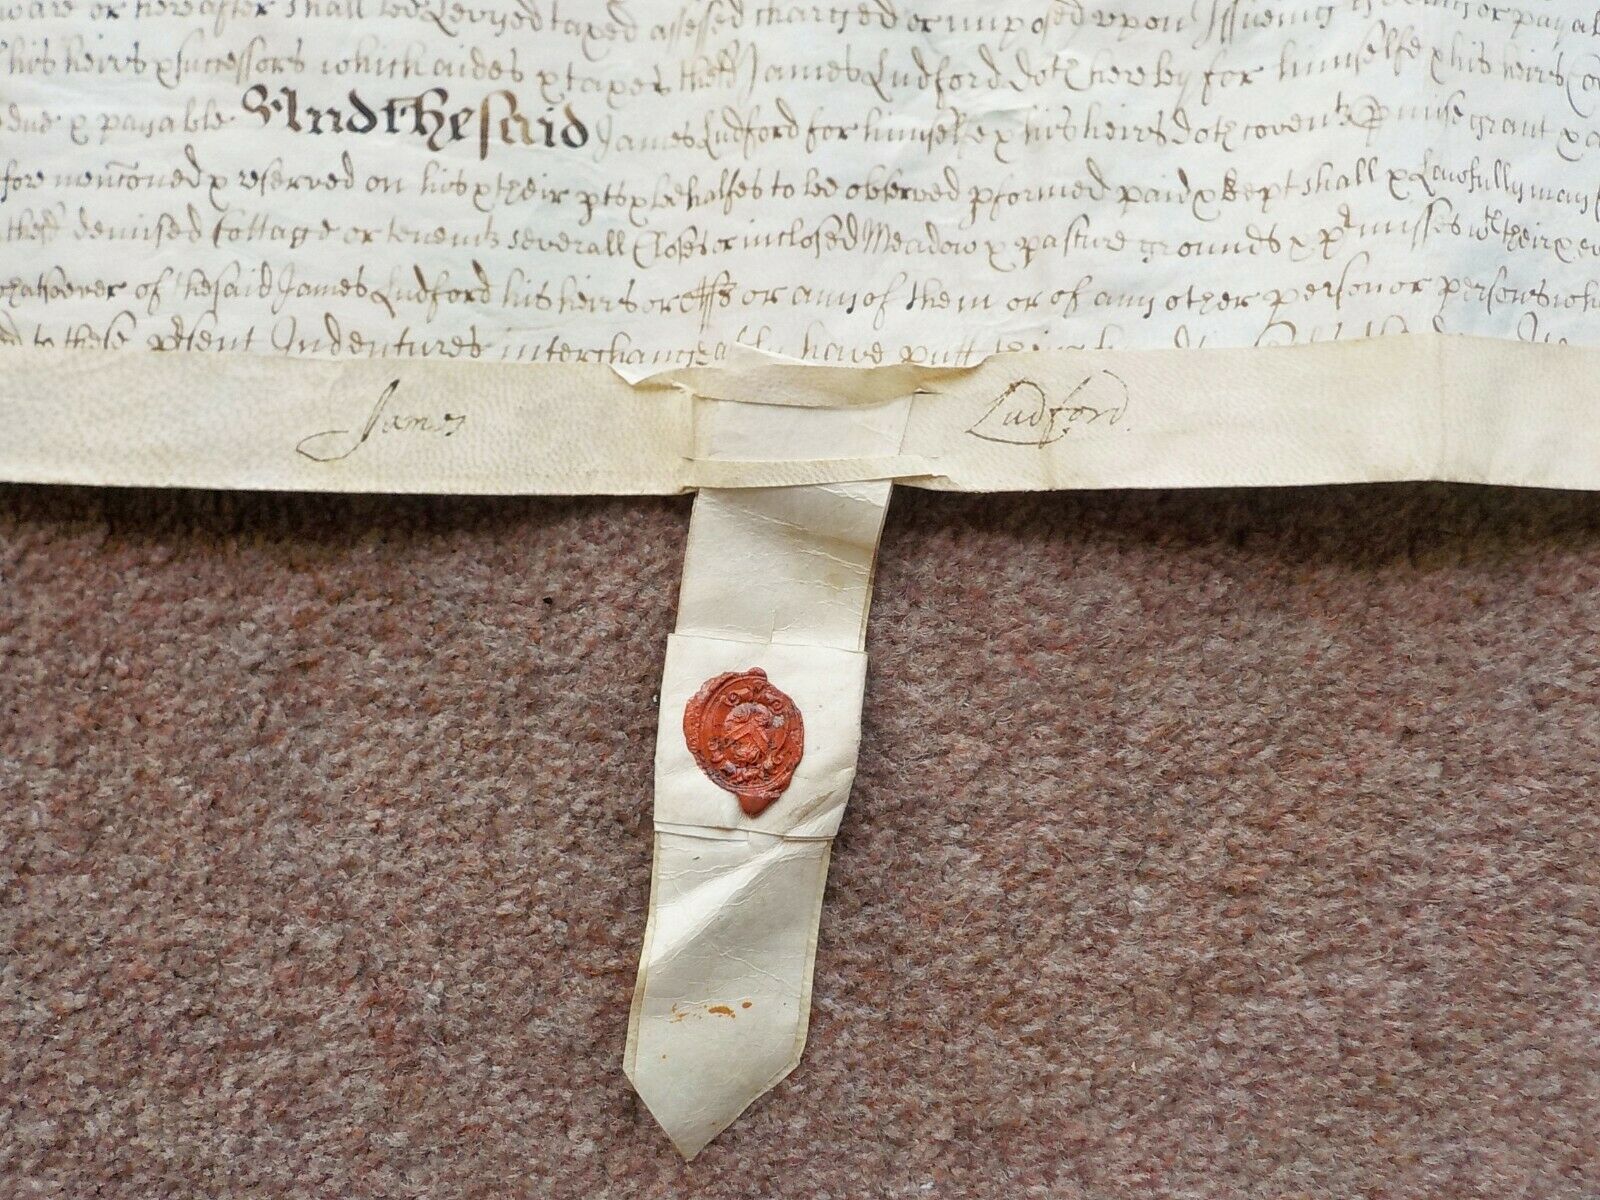 ware or hereafter shall bee Levyed taxed assessed charged or imposed upon Issueing
his heirs & successors which aides & taxes the sd James Ludford doth hereby for himselfe & his heirs
due & payable And the said James Ludford for himselfe & his heirs doth covent pmise grant &
fore menconed & reserved on his & their pts & behalfes to bee observed pformed paid & kept shall & Lawfully may
demised Cottage or tenemt severall Closes or inclosed Meadow & pasture grounds & pmisses wth their &
whatsoever of the said James Ludford his heirs or asss or any of them or of any other person or persons
to these psent Indentures interchangeably have putt
James Ludford